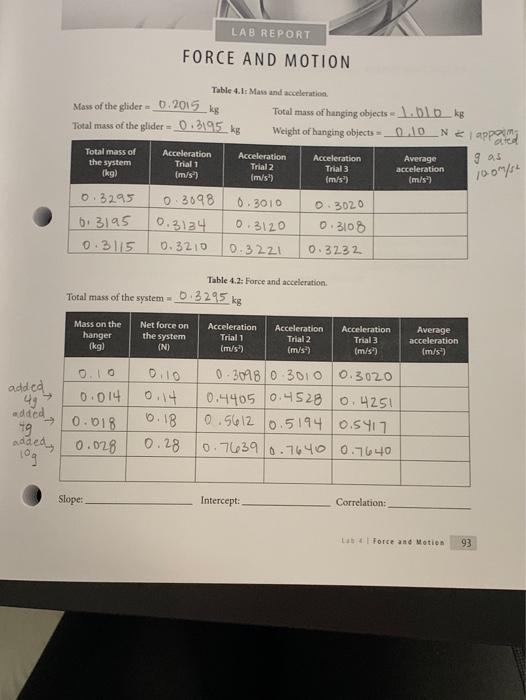 LAB REPORT
FORCE AND MOTION
Table 4.1: Mass and acceleration.
Mass of the glider = 0.2015 kg Total mass of hanging objects = 1.010 kg
Total mass of the glider = 0.3195 kg Weight of hanging objects = 0.10 N ← I approximated g as 10.0 m/s²
Total mass of the system (kg) Acceleration Trial 1 (m/s²) Acceleration Trial 2 (m/s²) Acceleration Trial 3 (m/s²) Average acceleration (m/s²)
0.3295 0.3098 0.3010 0.3020
0.3195 0.3134 0.3120 0.3108
0.3115 0.3210 0.3221 0.3232
Table 4.2: Force and acceleration.
Total mass of the system = 0.3295 kg
Mass on the hanger (kg) Net force on the system (N) Acceleration Trial 1 (m/s²) Acceleration Trial 2 (m/s²) Acceleration Trial 3 (m/s²) Average acceleration (m/s²)
0.10 0.10 0.3098 0.3010 0.3020
added 4g → 0.014 0.14 0.4405 0.4528 0.4251
added 4g → 0.018 0.18 0.5612 0.5194 0.5417
added 10g → 0.028 0.28 0.7639 0.7640 0.7640
Slope: Intercept: Correlation:
Lab 4 | Force and Motion 93